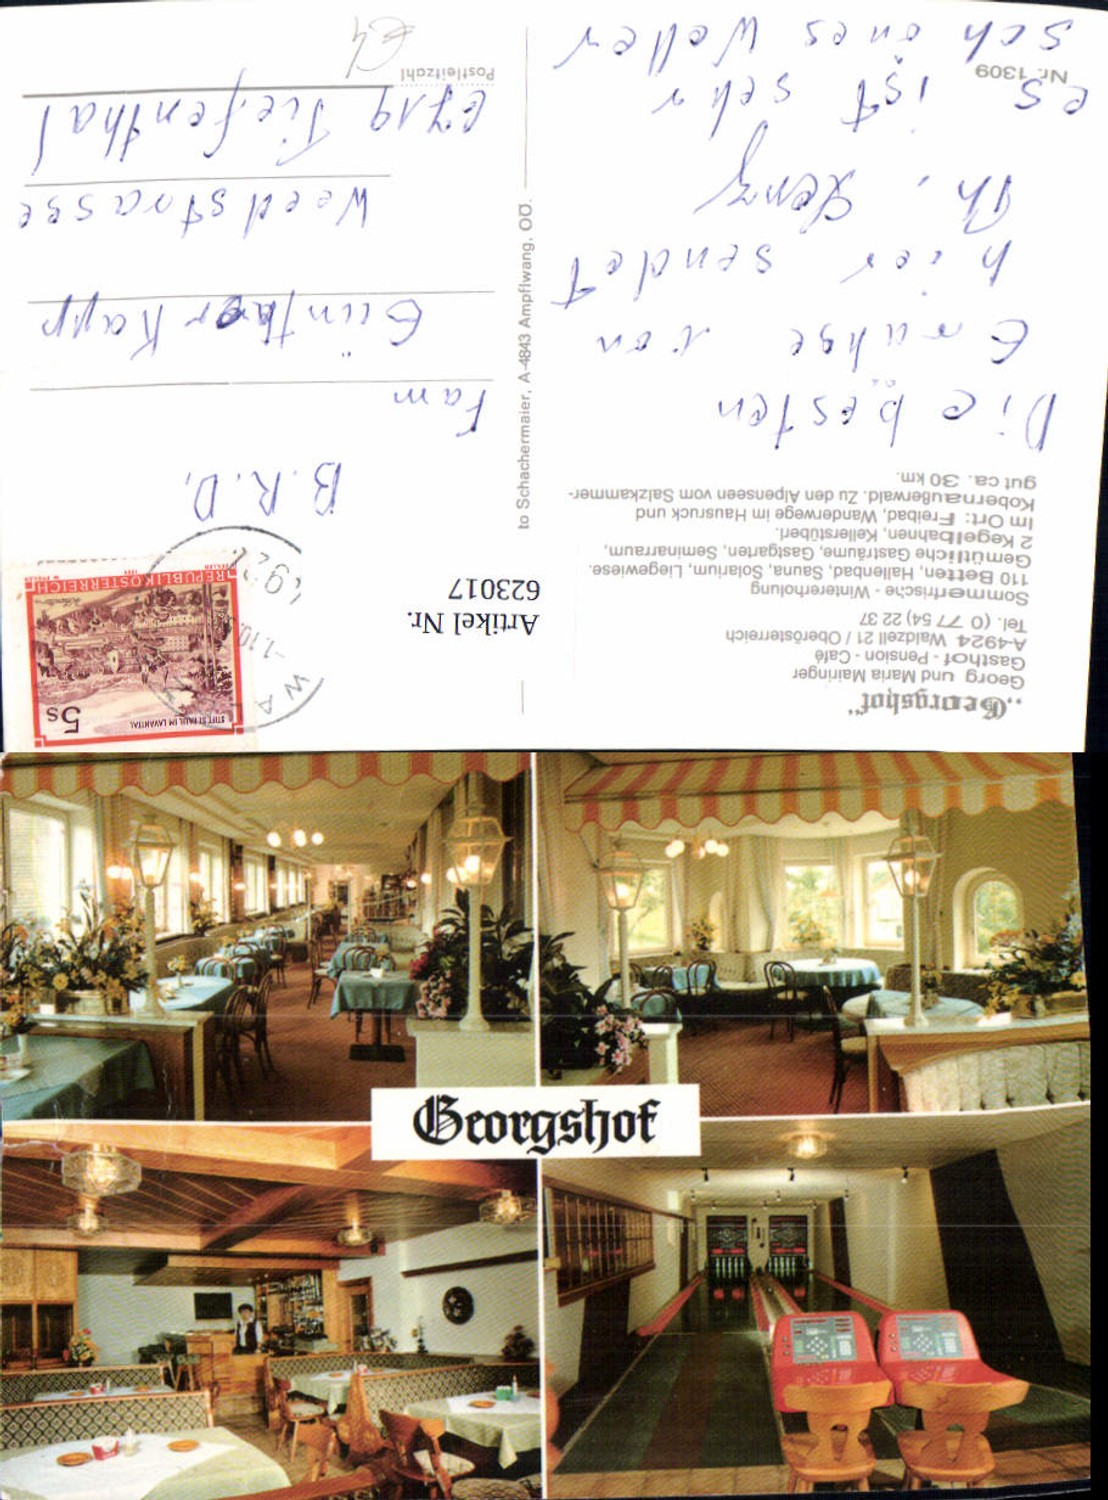 „Georgshof“
Georg und Maria Mairinger
Gasthof - Pension - Café
A-4924 Waldzell 21 / Oberösterreich
Tel. (0 77 54) 22 37
Sommerfrische - Wintererholung
110 Betten, Hallenbad, Sauna, Solarium, Liegewiese.
Gemütliche Gasträume, Gastgarten, Seminarraum,
2 Kegelbahnen, Kellerstüberl.
Im Ort: Freibad, Wanderwege im Hausruck und
Kobernaußerwald. Zu den Alpenseen vom Salzkammer-
gut ca. 30 km.
Die besten
Grühse von
hier sendet
Th. Lenz
es ist sehr
schönes Wetter
Nr. 1309
to Schachermaier, A-4843 Ampflwang, OÖ.
STIFT ST. PAUL IM LAVANTTAL
5s
REPUBLIK ÖSTERREICH
B.R.D.
Fam
Günther Kapp
Weedstrasse
6719 Tiefenthal
Postleitzahl
€4
Artikel Nr.
623017
Georgshof